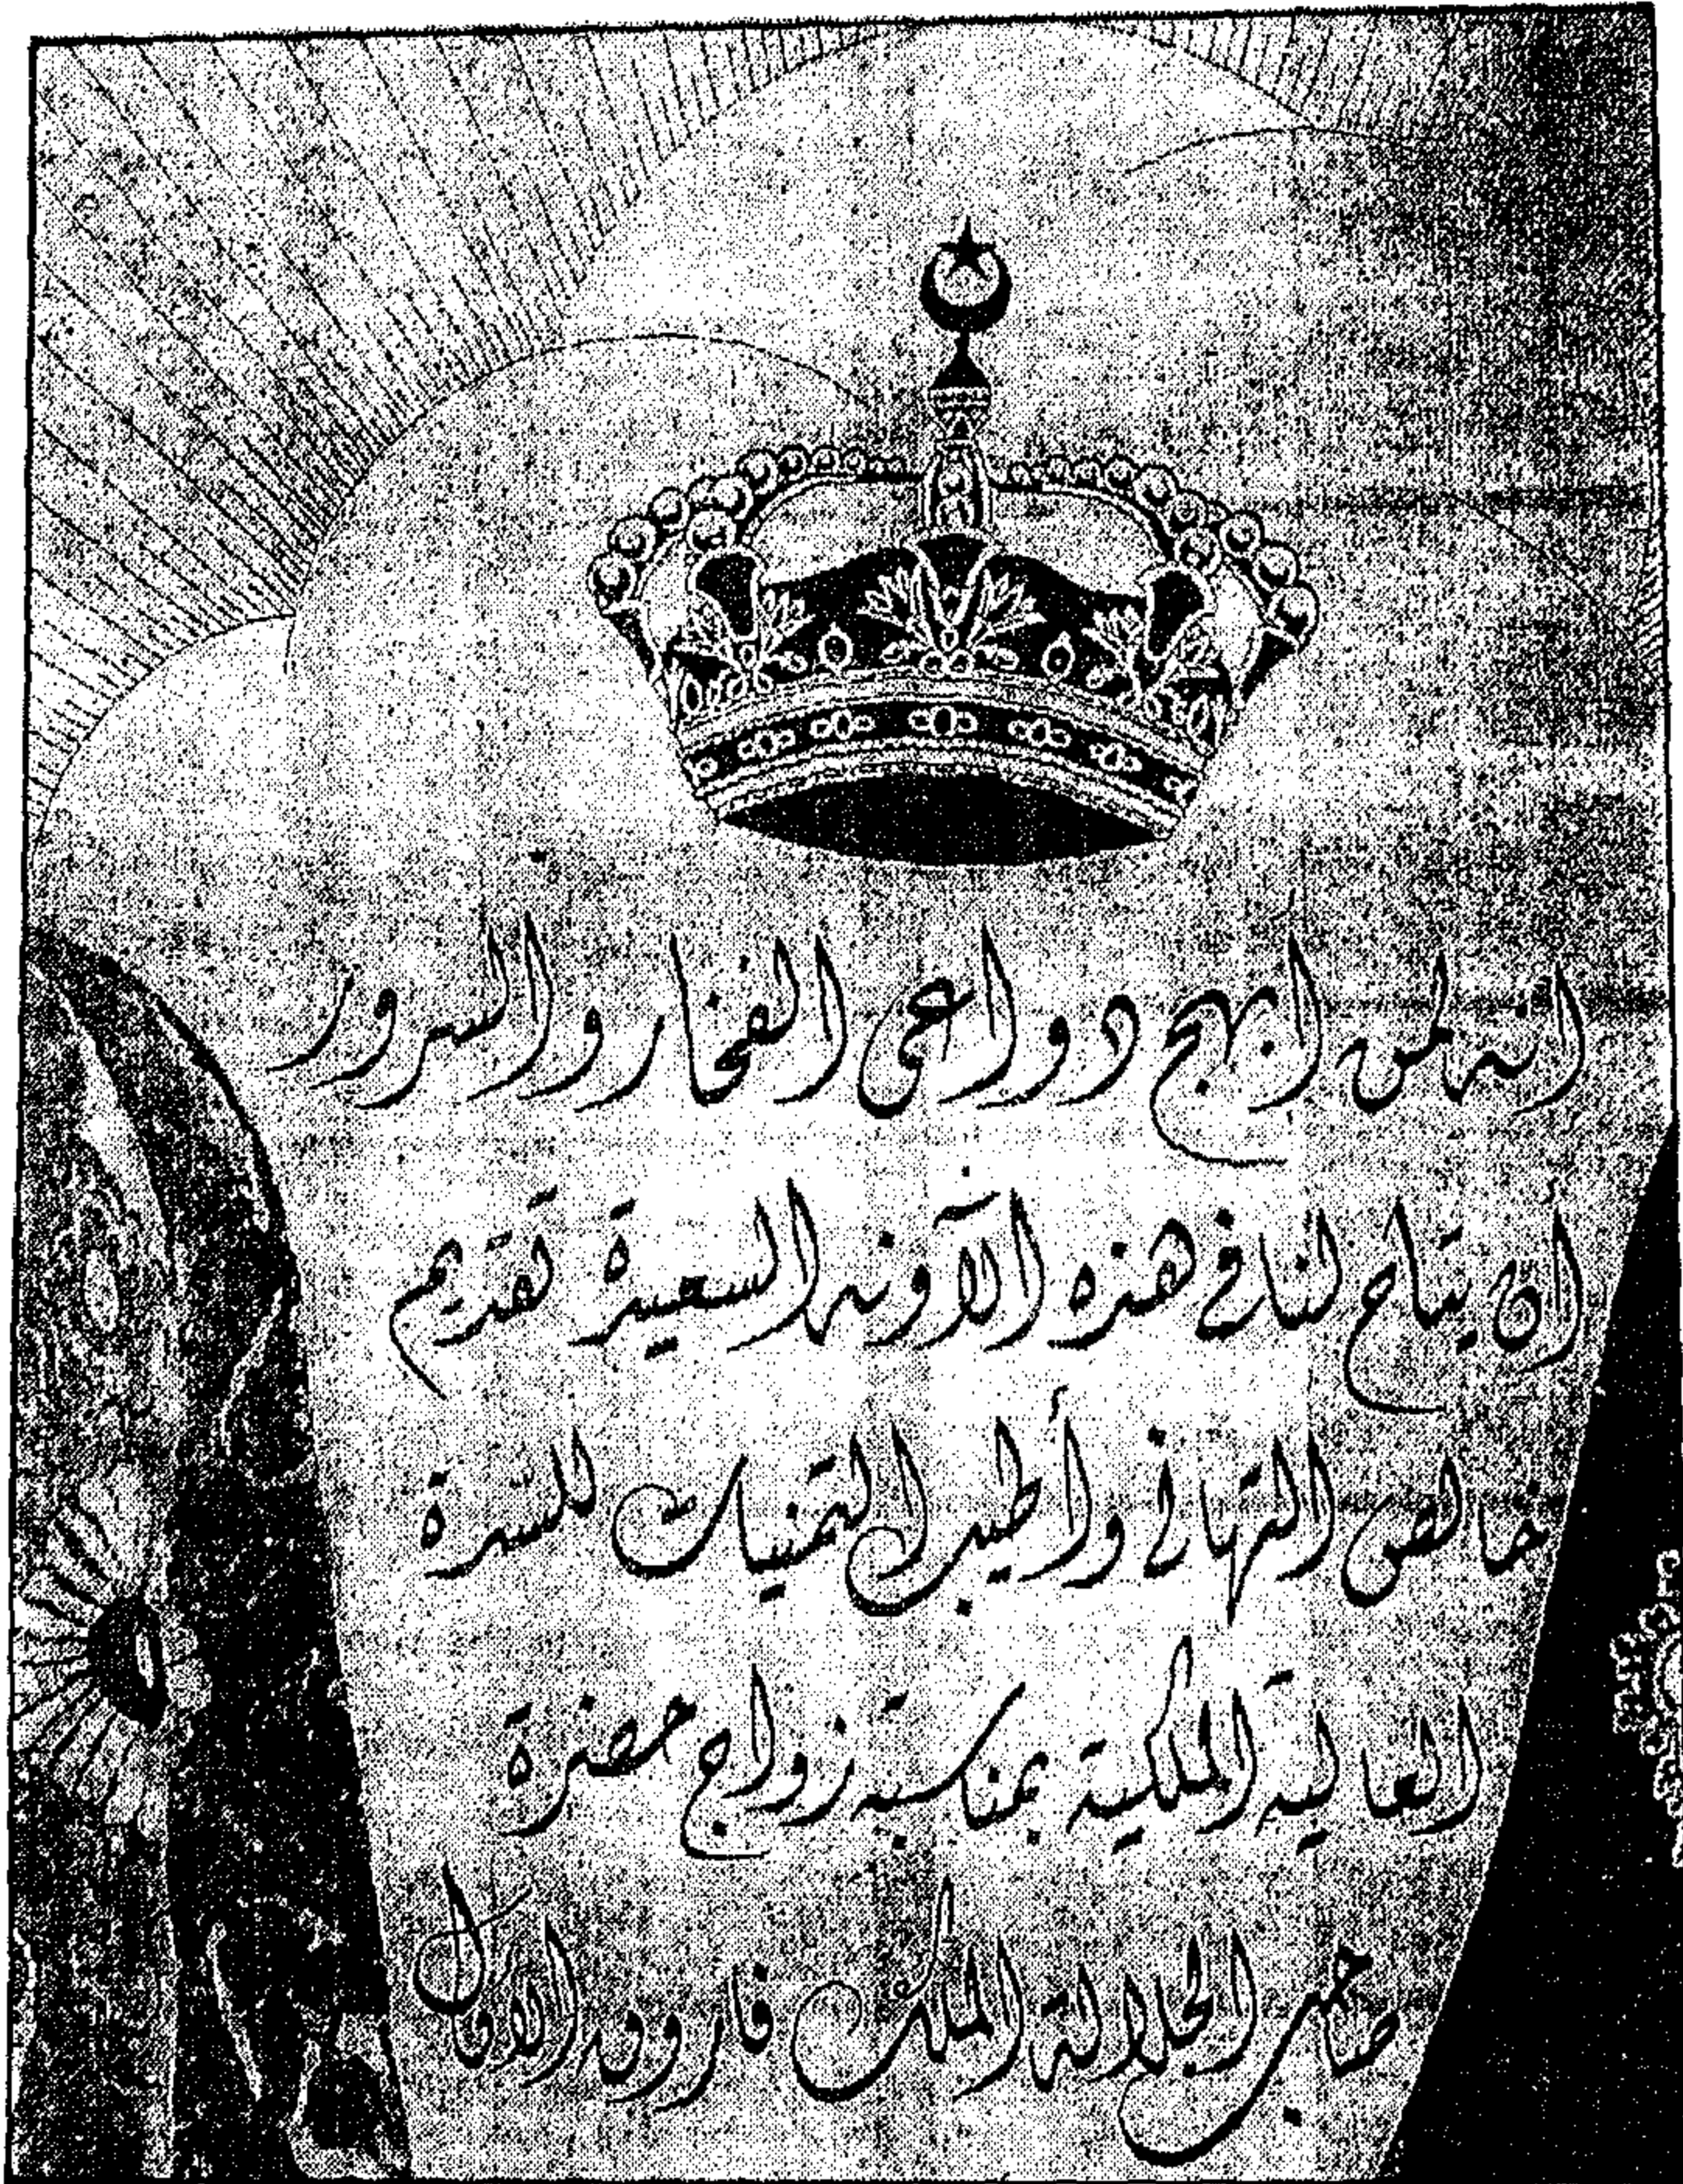 انه لمن أبهج دواعى الفخار والسرور
أن يتاح لنا فى هذه الآونة السعيدة تقديم
خالص التهانى وأطيب التمنيات للسدة
العالية الملكية بمناسبة زواج حضرة
صاحب الجلالة الملك فاروق الأول